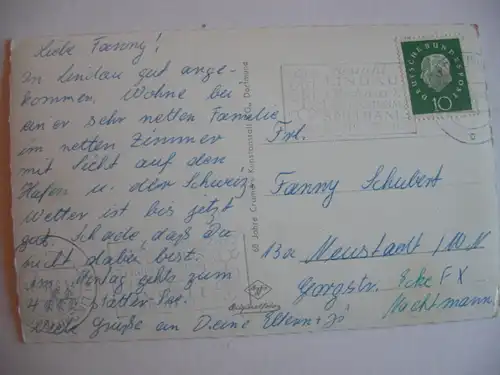 Liebe Fanny!
In Lindau gut ange-
kommen. Wohne bei
einer sehr netten Familie
im netten Zimmer
mit Sicht auf den
Hafen u. der Schweiz
Wetter ist bis jetzt
gut. Schade, daß Du
nicht dabei bist.
Am Montag gehts zum
Grüße an Deine Eltern +
60 Jahre Cramers Kunstanstalt Dortmund
Agfa
DEUTSCHE BUNDESPOST
10
Frl.
Fanny Schubert
13a Neustadt/WN
Gorgstr. Ecke FX
Nachtmann